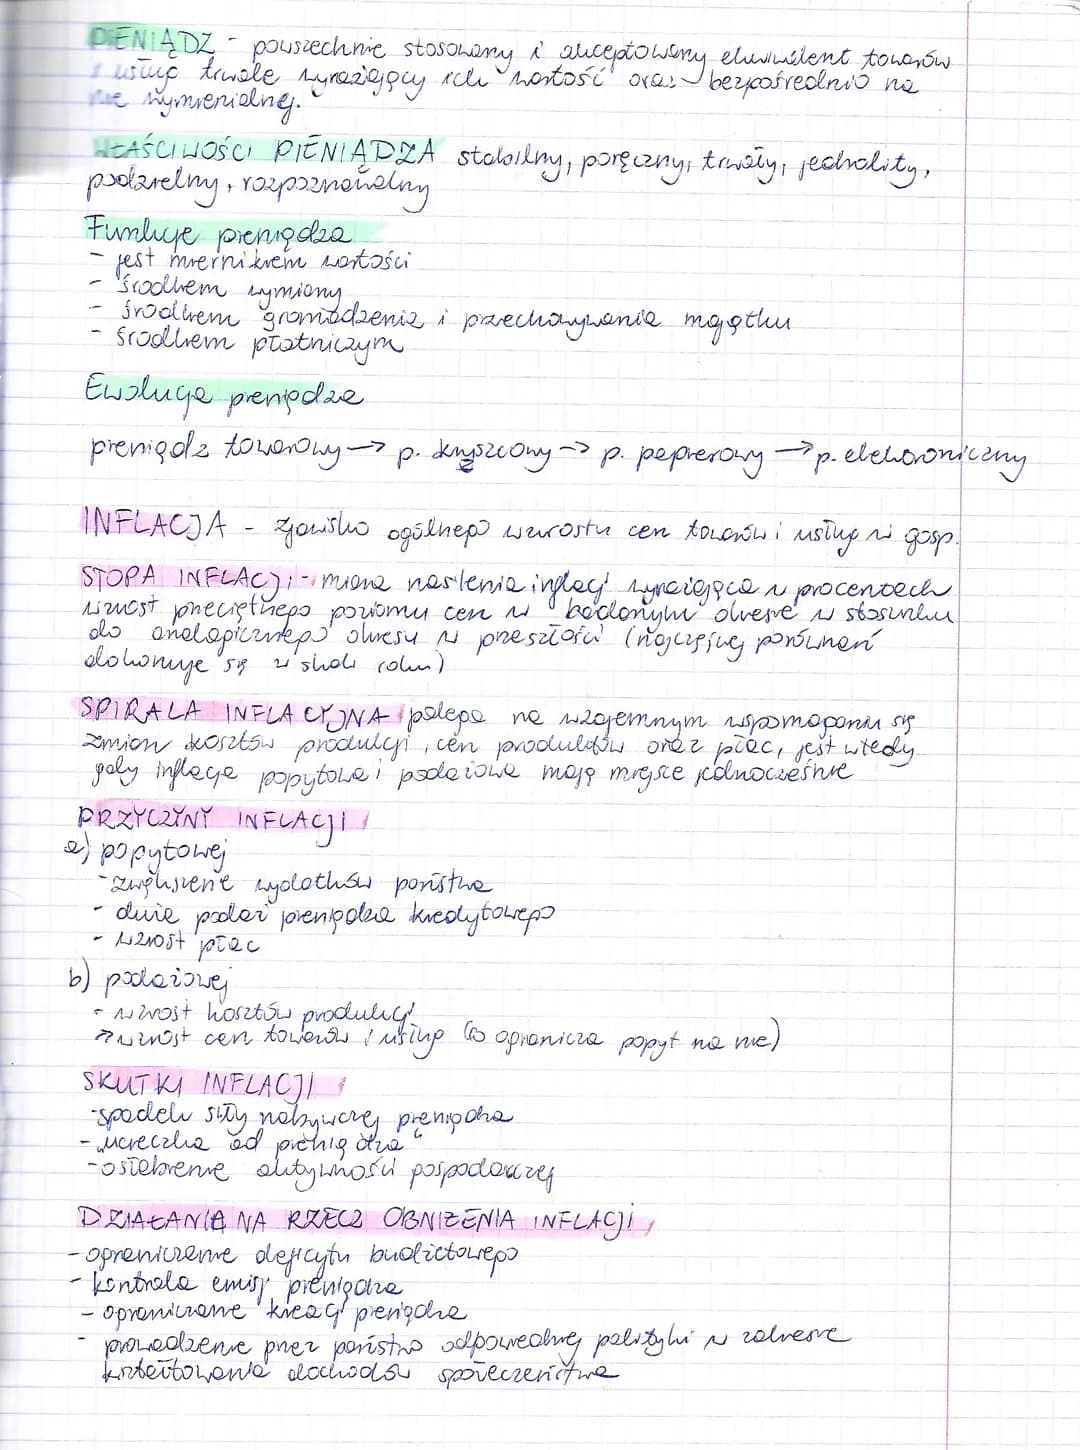 PIENIĄDZ - powszechnie stosowany i akceptowany ekwiwalent towarów
i usług trwale wyrażający ich wartość oraz bezpośrednio na
nie wymienialnej.
WŁAŚCIWOŚCI PIENIĄDZA stabilny, poręczny, trwały, jednolity,
podzielny, rozpoznawalny
Funkcje pieniądza
- jest miernikiem wartości
- środkiem wymiany
- środkiem gromadzenia i przechowywania majątku
- środkiem płatniczym
Ewolucja pieniądza
pieniądz towarowy → p. kruszcowy → p. papierowy → p. elektroniczny
INFLACJA - zjawisko ogólnego wzrostu cen towarów i usług w gosp.
STOPA INFLACJI - miara nasilenia inflacji wyrażająca w procentach
wzrost przeciętnego poziomu cen w badanym okresie w stosunku
do analogicznego okresu w przeszłości (najczęściej porównań
dokonuje się w skali roku)
SPIRALA INFLACYJNA polega na wzajemnym wspomaganiu się
zmian kosztów produkcji, cen produktów oraz płac, jest wtedy
gdy inflacja popytowa i podażowa mają miejsce jednocześnie
PRZYCZYNY INFLACJI
a) popytowej
- zwiększenie wydatków państwa
- duża podaż pieniądza kredytowego
- wzrost płac
b) podażowej
- wzrost kosztów produkcji
→ wzrost cen towarów i usług (co ogranicza popyt na nie)
SKUTKI INFLACJI
- spadek siły nabywczej pieniądza
- „ucieczka od pieniądza"
- osłabienie aktywności gospodarczej
DZIAŁANIA NA RZECZ OBNIŻENIA INFLACJI
- ograniczenie deficytu budżetowego
- kontrola emisji pieniądza
- ograniczanie kreacji pieniądza
- prowadzenie przez państwo odpowiedniej polityki w zakresie
kształtowania dochodów społeczeństwa